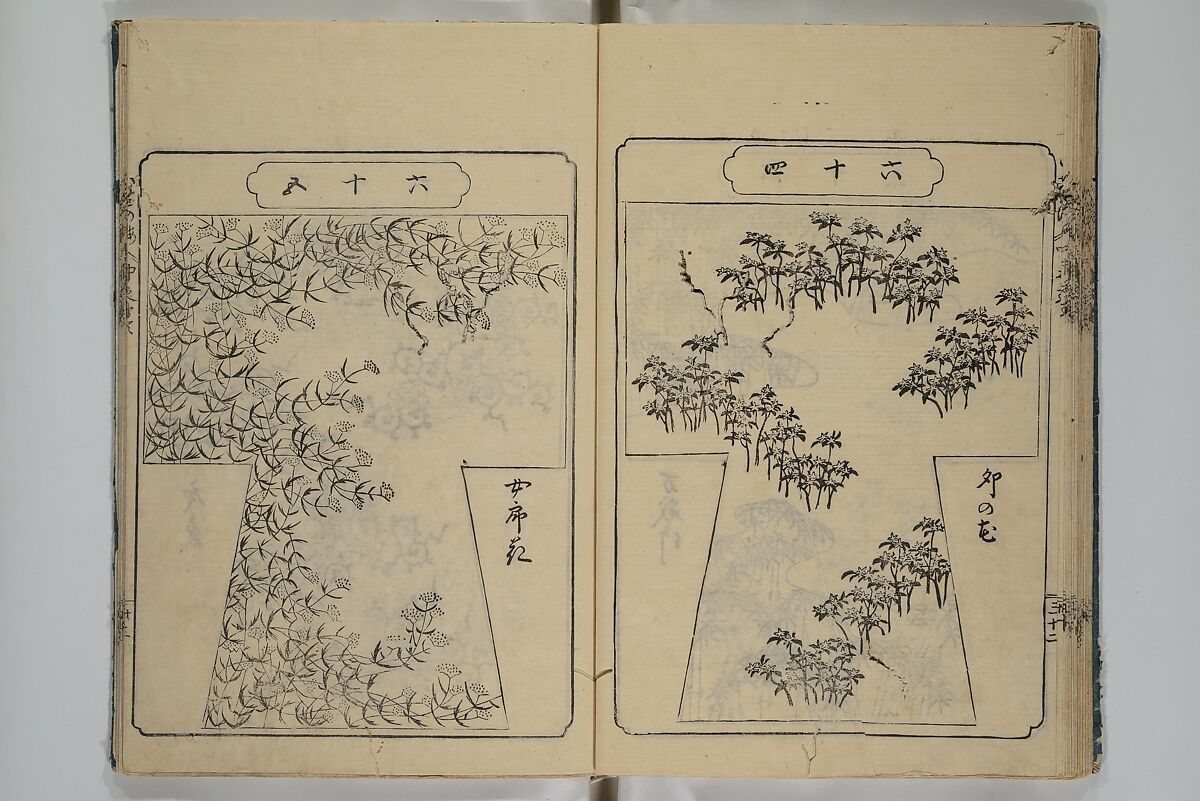 六十四
卯の花
六十五
女郎花